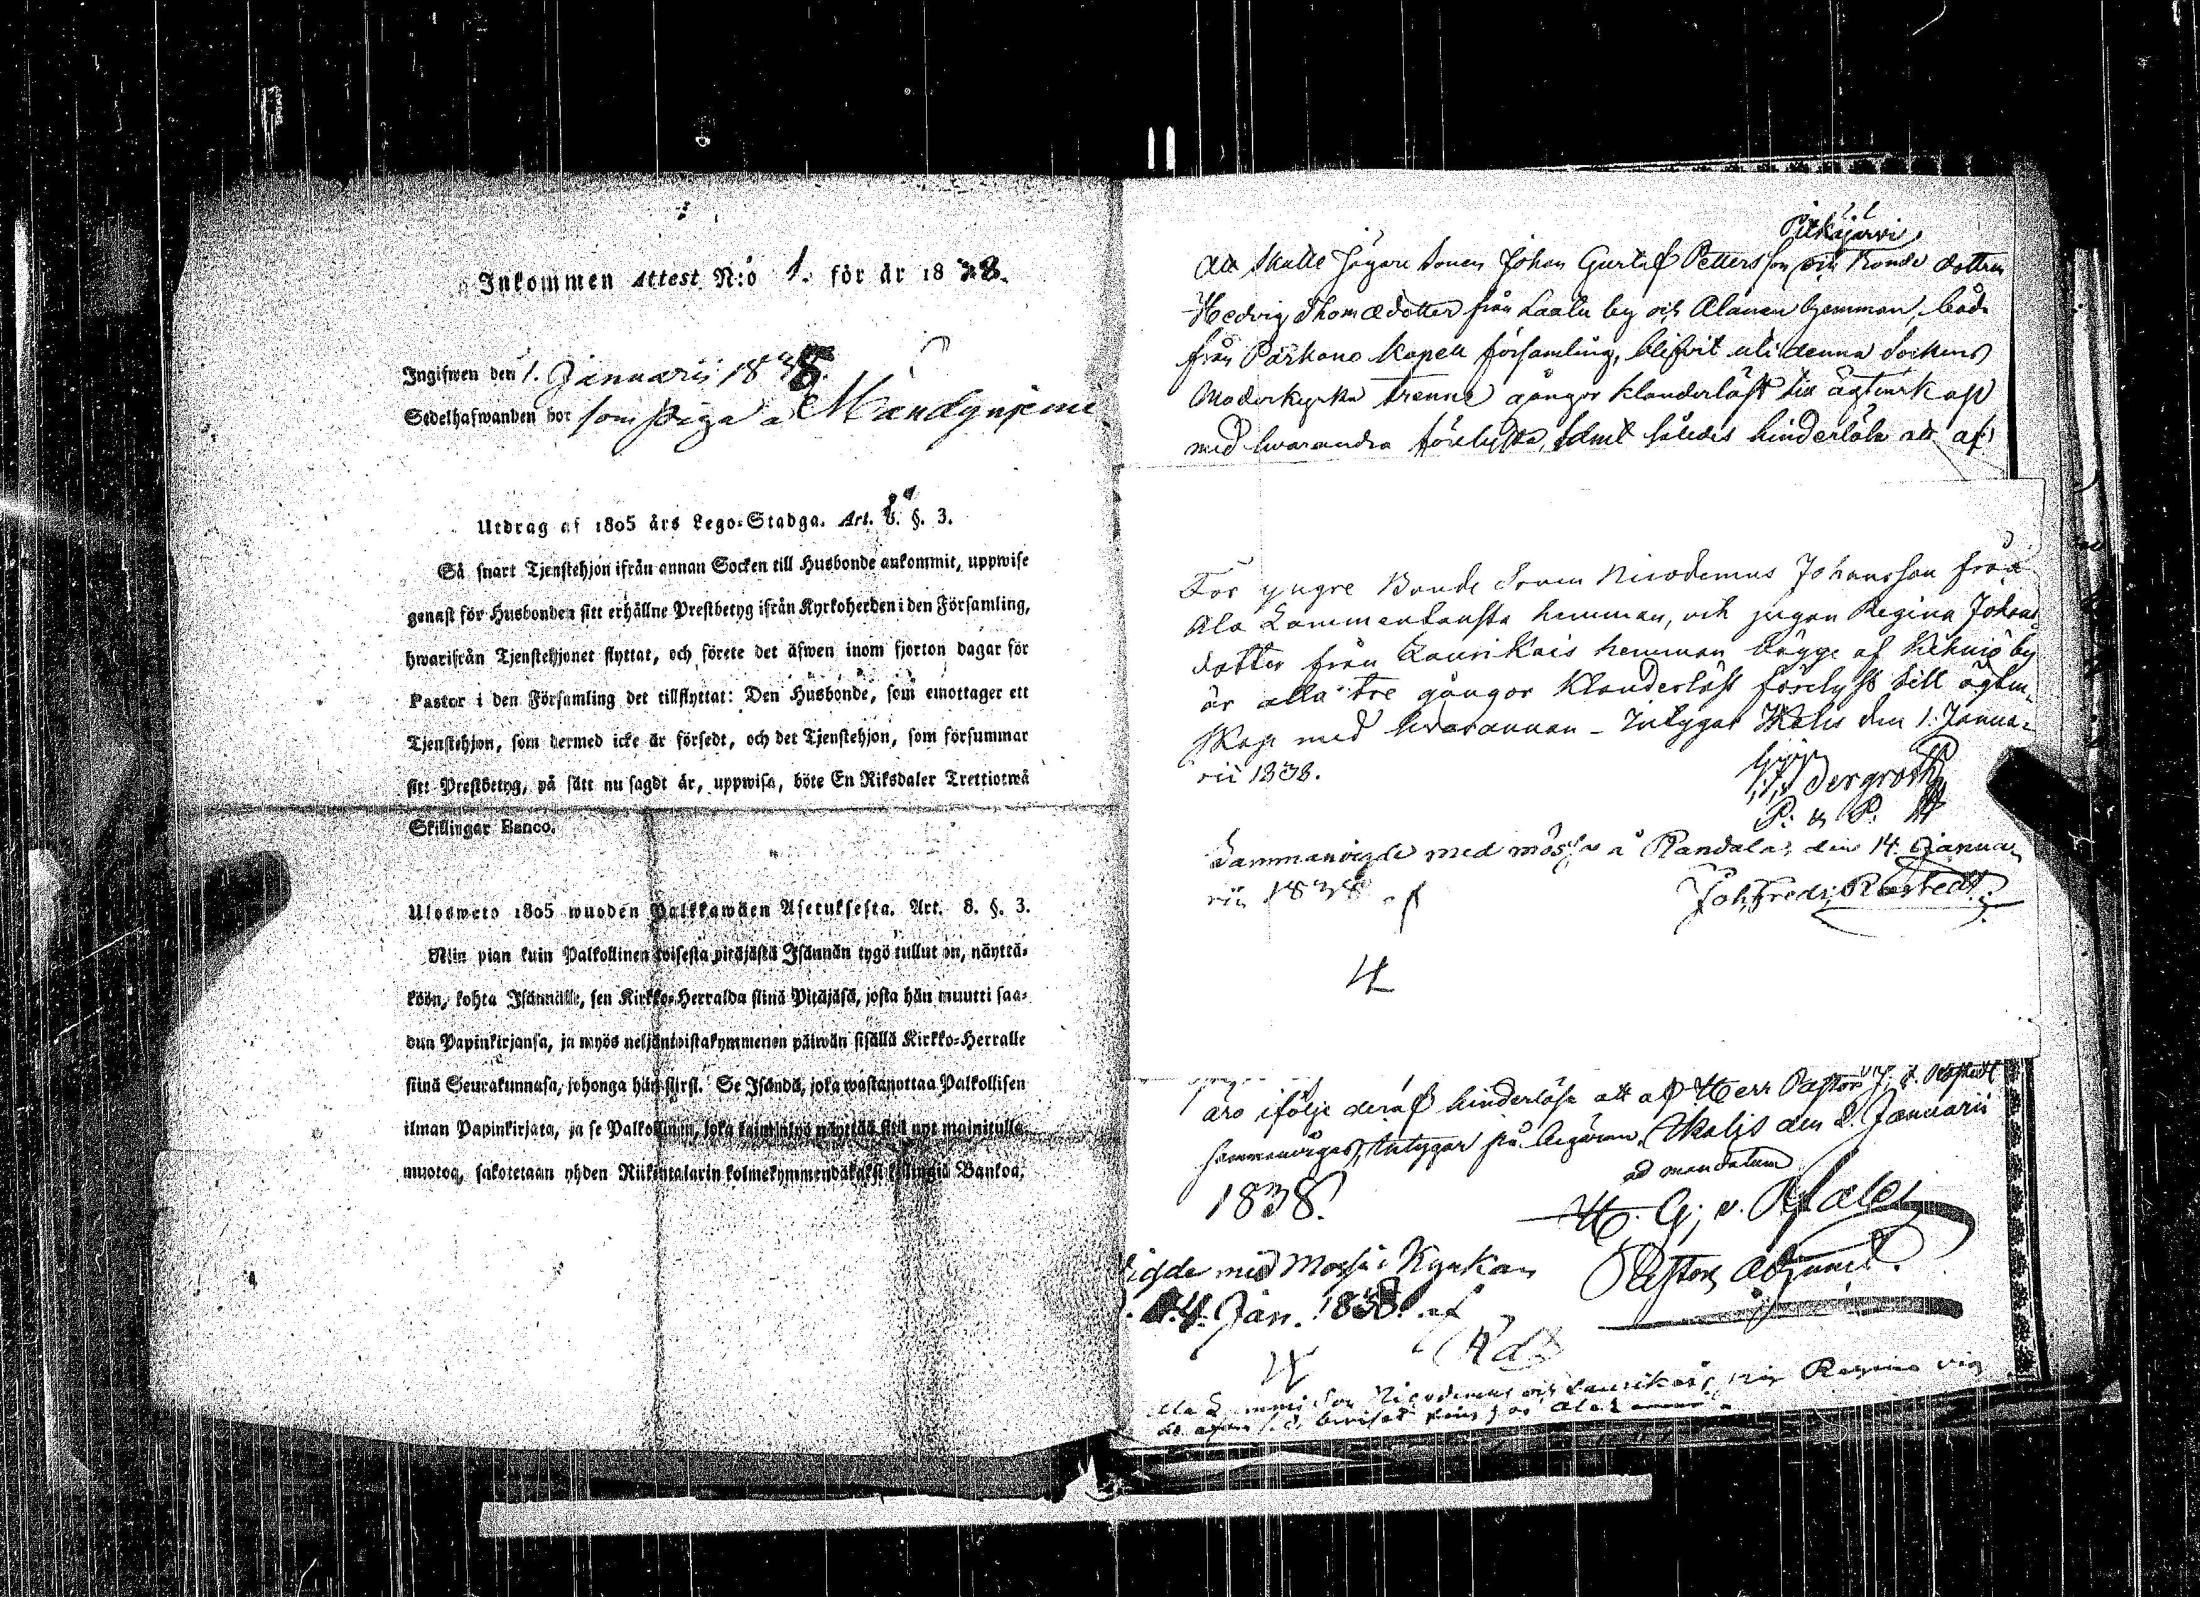 Inkommen Attest N:o 1. för år 1838.
Ingifwen den 1. Januarii 1838.
Sedelhafwanden bor som piga å Mandgnjemi
Utdrag af 1805 års Lego-Stadga. Art. 8. §. 3.
Så snart Tjenstehjon ifrån annan Socken till Husbonde ankommit, uppwise
genast för Husbonden sitt erhållne Prestbetyg ifrån Kyrkoherden i den Församling,
hwarifrån Tjenstehjonet flyttat, och förete det äfwen inom fjorton dagar för
Pastor i den Församling det tillflyttat: Den Husbonde, som emottager ett
Tjenstehjon, som dermed icke är försedt, och det Tjenstehjon, som försummar
sitt Prestbetyg, på sätt nu sagdt är, uppwisa, böte En Riksdaler Trettiotwå
Skillingar Banco.
Ulosweto 1805 wuoden Palkkawäen Asetuksesta. Art. 8. §. 3.
Niin pian kuin Palkollinen toisesta pitäjästä Isännän tygö tullut on, näyttä-
köön, kohta Isännälle, sen Kirkko-Herralda siinä Pitäjäsä, josta hän muutti saa-
dun Papinkirjansa, ja myös neljäntoistakymmenen päiwän sisällä Kirkko-Herralle
siinä Seurakunnasa, johonga hän siirsi. Se Isändä, joka wastanottaa Palkollisen
ilman Papinkirjata, ja se Palkollinen, joka laiminlyö näyttää sitä nyt mainitulla
muotoa, sakotetaan yhden Riikintalarin kolmekymmendäkaksi killingiä Bankoa.
Pitkäjärvi
Att Skatte Jägare Sonen Johan Gustaf Pettersson och Bonde dottren
Hedvig Thomædotter från Laalu by och Alanen hemman, både
från Parkano Kapell församling, blifvit uti denna Sockens
Moderkyrka trenne gånger klanderlöst till ägtenskap
med hvarandra förelysta, samt således hinderlösa att af
För yngre Bonde Sonen Nicodemus Johansson från
Ala Lammentausta hemman, och pigan Regina Johans
dotter från Laurikais hemman bägge af Kihniö by
är alla tre gångor Klanderlöst förelyst till ägten-
skap med hvarannan - Intygar Ikalis den 1. Janua-
rii 1838.
P: & P:
Sammanvigde med mössa å Randala, den 14. Janua
rii 1838 af
Joh. Fredr. Rostedt.
äro i följe deraf hinderlösa att af Herr Pastor J. F. Rostedt
sammanvigas, intygar på begäran, Ikalis den 2. Januarii
1838.
ad mandatum
H. G. v. Pfaler
Pastors Adjunct.
Vigde med Mössa i Kyrkan
d. 14. Jan. 1838. af
Rdt